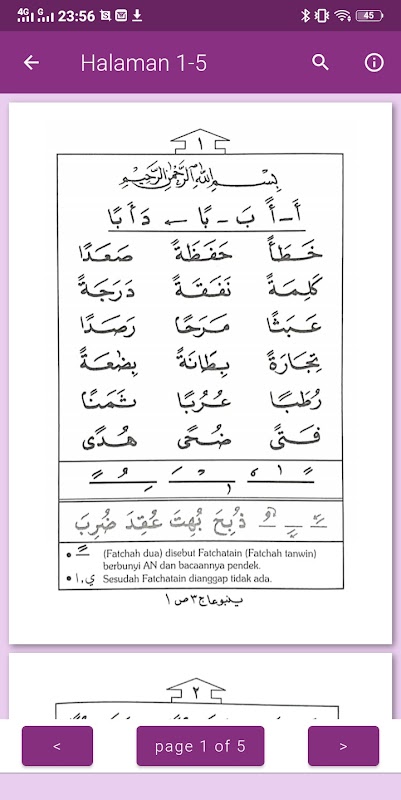 4G G 23:56 45
Halaman 1-5
١
بِسْمِ اللهِ الرَّحْمٰنِ الرَّحِيْمِ
أَ-أً بَ-بًا ← دَأَبًا
خَطَأً حَفَظَةً صَعَدًا
كَلِمَةً نَفَقَةً دَرَجَةً
عَبَثًا مَرَحًا رَصَدًا
تِجَارَةً بِطَانَةً بِضٰعَةً
رُطَبًا عُرُبًا ثَمَنًا
فَتًى ضُحًى هُدًى
ذُبِحَ بُهِتَ عُقِدَ ضُرِبَ
• ـً (Fatchah dua) disebut Fatchatain (Fatchah tanwin)
berbunyi AN dan bacaannya pendek.
• ا، ي Sesudah Fatchatain dianggap tidak ada.
ينبوعاج ٣ ص ١
٢
< page 1 of 5 >